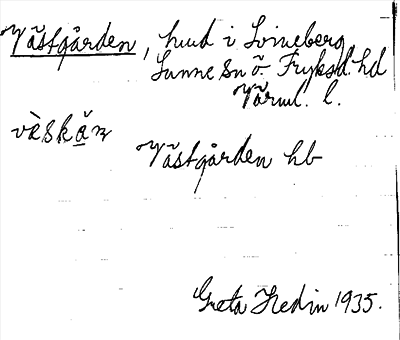 Västgården, hmd i Svineberg
Sunne sn ö. Fryksd. hd
Värml. l.
vèskạ̈n
Västgården hb
Greta Hedin 1935.